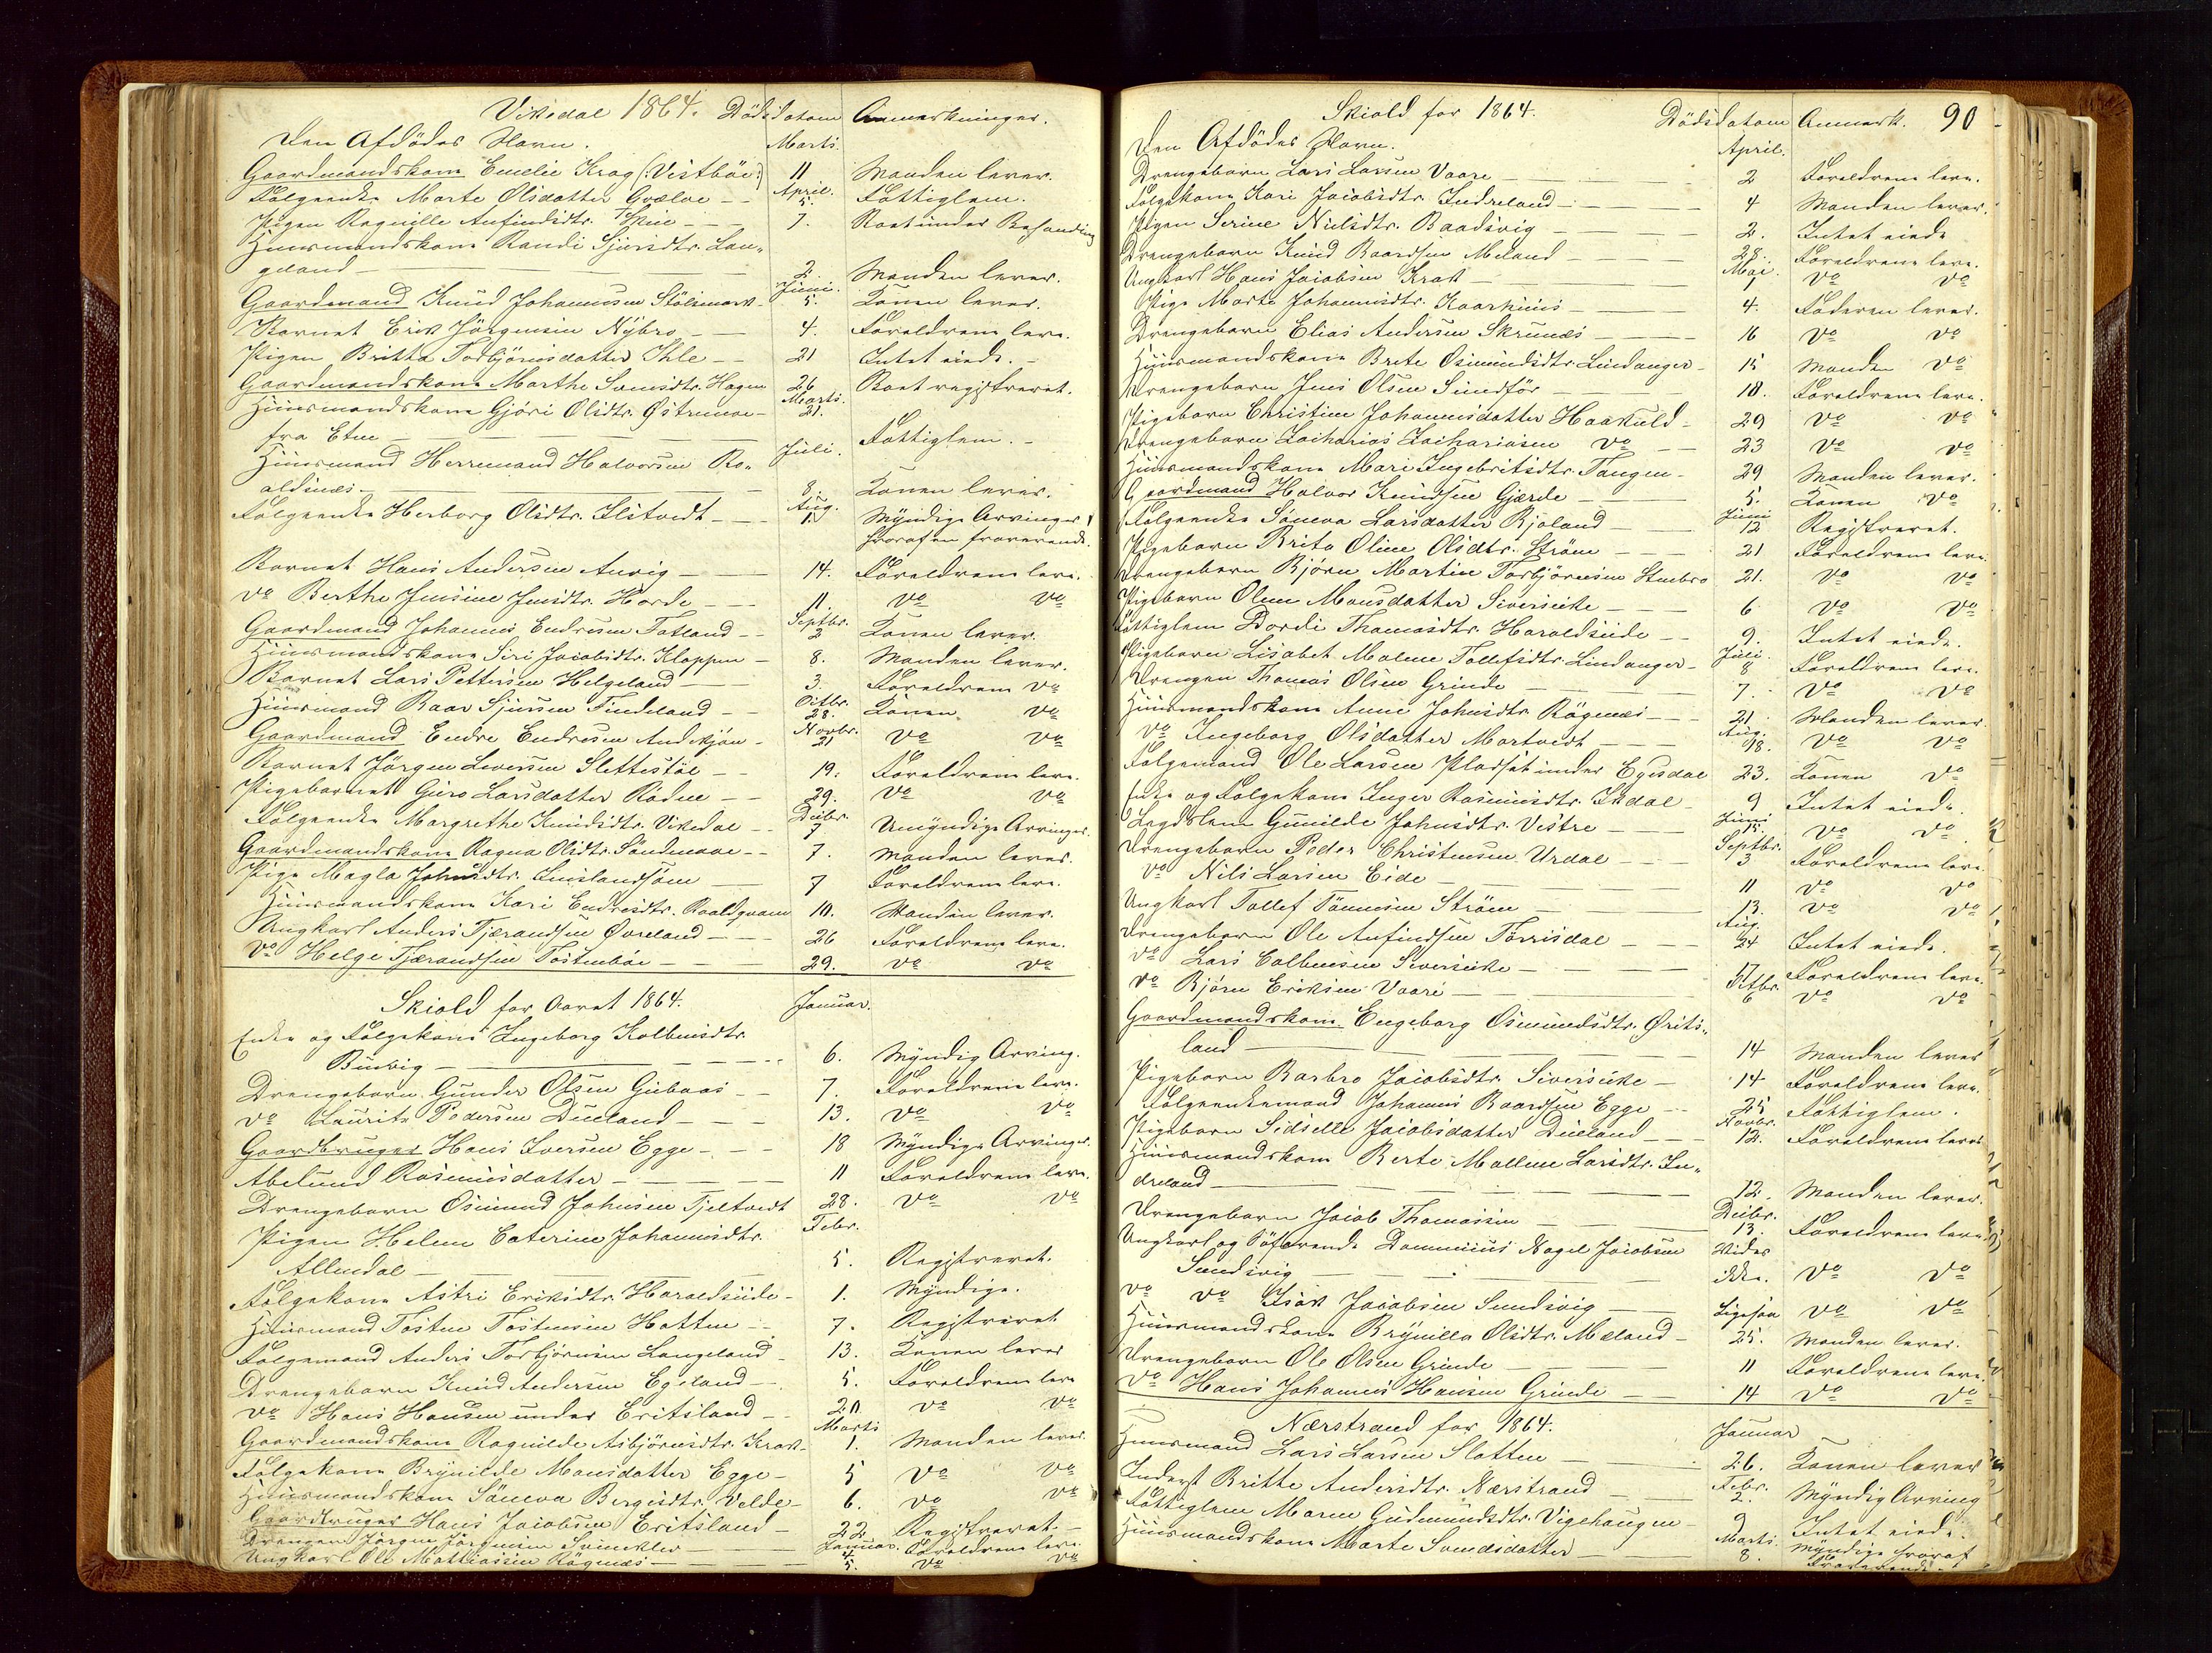 Vikedal 1864. Dödsdatum Anmærkninger.
Den Afdödes Navn. Marts.
Gaardmandskone Emelie Krag (: Vestbøe :) 11 Manden lever.
April.
Folgeenke Marte Olsdatter Qvælve - 5. Fattiglem.
Pigen Ragnille Anfindsdtr. 7. Boet under Behandling
Huusmandskone Randi Sjursdtr. Lan-
geland - 2. Manden lever.
Juni.
Gaardmand Knud Johannessen Stölsmark - 5. Konen lever.
Barnet Erik Jörgensen Nybro - 4. Forældrene leve.
Pigen Britha Torbjörnsdatter Ihle - 21 Intet eiede. -
Gaardmandskone Marthe Svensdtr. Hagen 26 Boet registreret.
Marts.
Huusmandskone Gjöri Olsdtr. Østremoe - 21.
fra Etne - Fattiglem. -
Juli.
Huusmand Herremand Halvorsen Ro-
aldsnæs - 8. Konen lever.
Aug.
Folgeenke Herborg Olsdtr. Ilstvedt - 1. Myndige Arvinger
hvoraf en fraværende.
Barnet Hans Andersen Anvig - 14. Forældrene leve.
Do Berthe Jensine Jensdtr. Horde - 11. Do Do
Septbr.
Gaardmand Johannes Endresen Fatland - 2 Konen lever.
Huusmandskone Siri Jacobsdtr. Kloppen - 8. Manden lever.
Barnet Lars Pettersen Helgeland 3. Forældrene Do
Octbr.
Huusmand Baar Sjursen Tindeland - 28. Konen Do
Novbr.
Gaardmand Endre Endresen Andskjön - 21 Do Do
Barnet Jörgen Iversen Slettestøl - 19. Forældrene leve.
Pigebarnet Guro Larsdatter Rödne - 29. Do Do
Decbr.
Folgeenke Margrethe Knudsdtr. Vikedal - 7 Umyndige Arvinger.
Gaardmandskone Ragna Olsdtr. Söndenaae - 7. Manden lever.
Pige Magla Johnsdtr. 7 Forældrene leve.
Huusmandskone Kari Endresdtr. Roaldqvam 10. Manden lever.
Ungkarl Anders Tjerandsen Øvreland - 26 Forældrene leve.
Do Helge Tjerandsen Tostenbøe - 29. Do Do
Skiold for Aaret 1864. Januar.
Enke og Folgekone Ingeborg Kolbensdtr.
- 6. Myndig Arving.
Drengebarn Gunder Olsen Gubaas - 7. Forældrene leve.
Do Laurits Pedersen Dueland - 13. Do Do
Gaardbruger Hans Iversen Egge - 18 Myndige Arvinger.
Abelund Rasmusdatter - 11 Forældrene leve.
Drengebarn Osmund Johnsen Tjeltvedt 28. Do Do
Febr.
Pigen Helene Caterine Johannesdtr.
Allendal - 5. Registreret.
Folgekone Astri Eriksdtr. Haraldseide - 1. Myndige.
Huusmand Tosten Tostensen Hatten - 7. Registreret
Folgemand Anders Torbjörnsen Langeland - 13. Konen lever
Drengebarn Knud Andersen Egeland - 5. Forældrene leve
Do Hans Hansen under Eritsland - 20. Do Do
Marts
Gaardmandskone Ragnilde Asbjörnsdtr. Krak - 1. Manden lever.
Folgekone Brynilde Monsdatter Egge - 5 Do Do
Huusmandskone Söneva Birgesdtr. Velde - 6. Do Do
Gaardbruger Hans Jacobsen Eritsland - 22. Registreret. -
Januar.
Drengen Jörgen Jörgensen - 4. Forældrene leve.
Ungkarl Ole Mathiassen Rögenæs - 5. Do Do
Skiold for 1864. Dödsdatum Anmærk. 90
Den Afdödes Navn. April.
Drengebarn Lars Larsen Vaare - 2 Forældrene leve.
Folgekone Kari Jacobsdtr. Indreland - 4 Manden lever.
Pigen Serine Nielsdtr. Baadsvig - 2. Intet eiede
Drengebarn Knud Baardsen Meland - 28. Forældrene leve.
Mai.
Ungkarl Hans Jacobsen Krak - 1 Do Do
Pige Marte Johannesdtr. Kaarhuus - 4. Faderen lever.
Drengebarn Elias Andersen Skrunæs - 16 Do Do
Huusmandskone Brite Osmundsdtr. Lindanger - 15 Manden Do
Drengebarn Jens Olsen Sundför 18. Forældrene leve.
Pigebarn Christine Johannesdatter Haakuld - 29 Do Do
Drengebarn Zacharias Zachariasen Do - 23 Do Do
Huusmandskone Mari Ingebritsdtr. Tangen - 29 Manden lever.
Gaardmand Halvor Knudsen Gjerde - 5. Konen Do
Juni
Folgeenke Söneva Larsdatter Bjoland - 12 Registreret.
Pigebarn Brita Oline Olsdtr. Ström - 21 Forældrene leve
Drengebarn Björn Martin Torbjörnsen Stenbro 21. Do Do
Pigebarn Olene Monsdatter Siversvike - 6 Do Do
Fattiglem Dordi Thomasdtr. Haraldseide - 9. Intet eiede.
Juli.
Pigebarn Lisabet Malene Tollefsdtr. Lindanger - 8 Forældrene leve.
Drengen Thomas Olsen Grinde - 7. Do Do
Huusmandskone Anne Johnsdtr. Rögenæs - 21. Manden lever.
Aug.
Do Ingeborg Olsdatter Mortvedt - 18. Do Do
Folgemand Ole Larsen Pladset under Egesdal 23. Konen Do
Enke og Folgekone Inger Rasmusdtr. Isdal - 9 Intet eiede
Juni
Lægdslem Gunilde Johnsdtr. Vestre - 15. Do Do
Septbr.
Drengebarn Peder Christensen Urdal - 3 Forældrene leve
Do Nils Larsen Eide - 11 Do Do
Ungkarl Tollef Tönnesen Ström - 13. Do Do
Aug.
Drengebarn Ole Anfindsen Törrisdal - 24 Intet eiede.
Do Lars Colbensen Siversvike - 17 Forældrene leve.
Octbr.
Do Björn Eriksen Vaare - 6 Do Do
Gaardmandskone Engeborg Osmundsdtr. Ørits-
land - 14 Manden lever
Pigebarn Barbro Jacobsdtr. Siversvike - 14 Forældrene leve.
Folgeenkemand Johannes Baardsen Egge - 25 Fattiglem.
Novbr.
Pigebarn Sidselle Jacobsdatter Dueland - 12. Forældrene leve
Huusmandskone Berte Mallene Larsdtr. In-
dreland - 12. Manden lever.
Decbr.
Drengebarn Jacob Thomassen - 13. Forældrene leve
Ungkarl og Söfarende Dominicus Nagel Jacobsen Vides
Sundsvig - ikke. Do Do
Do Do Isak Jacobsen Sundsvig - Ligesaa Do Do
Huusmandskone Brynilla Olsdtr. Mæland - 25. Manden lever.
Drengebarn Ole Olsen Grinde - 11 Forældrene leve.
Do Hans Johannes Hansen Grinde - 14 Do Do
Nærstrand for 1864. Januar
Huusmand Lars Larsen Slotten - 26. Konen lever
Febr.
Inderst Britte Andersdtr. Nærstrand - 2. Myndig Arving
Fattiglem Maren Gudmundsdtr. Vigehaugen - 9 Intet eiede.
Marts.
Huusmandskone Marte Svendsdatter - 8. Myndige hvoraf
Fraværende.